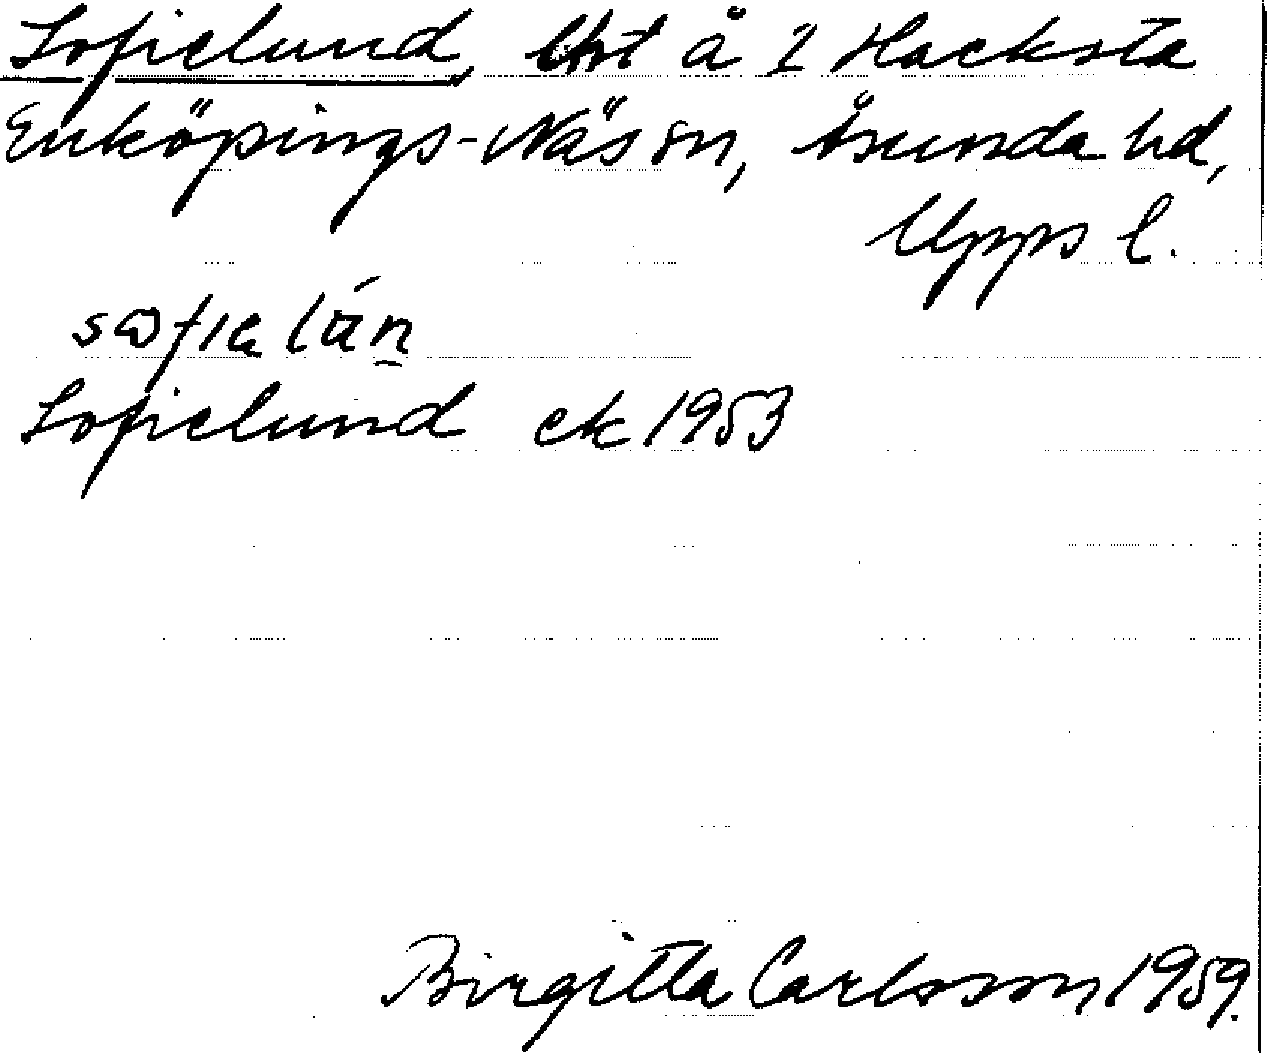 Sofielund, Hst å 2 Hacksta
Enköpings-Näs sn, Åsunda hd,
Upps l.
Sofielund ek 1953
Birgitta Carlsson 1959.